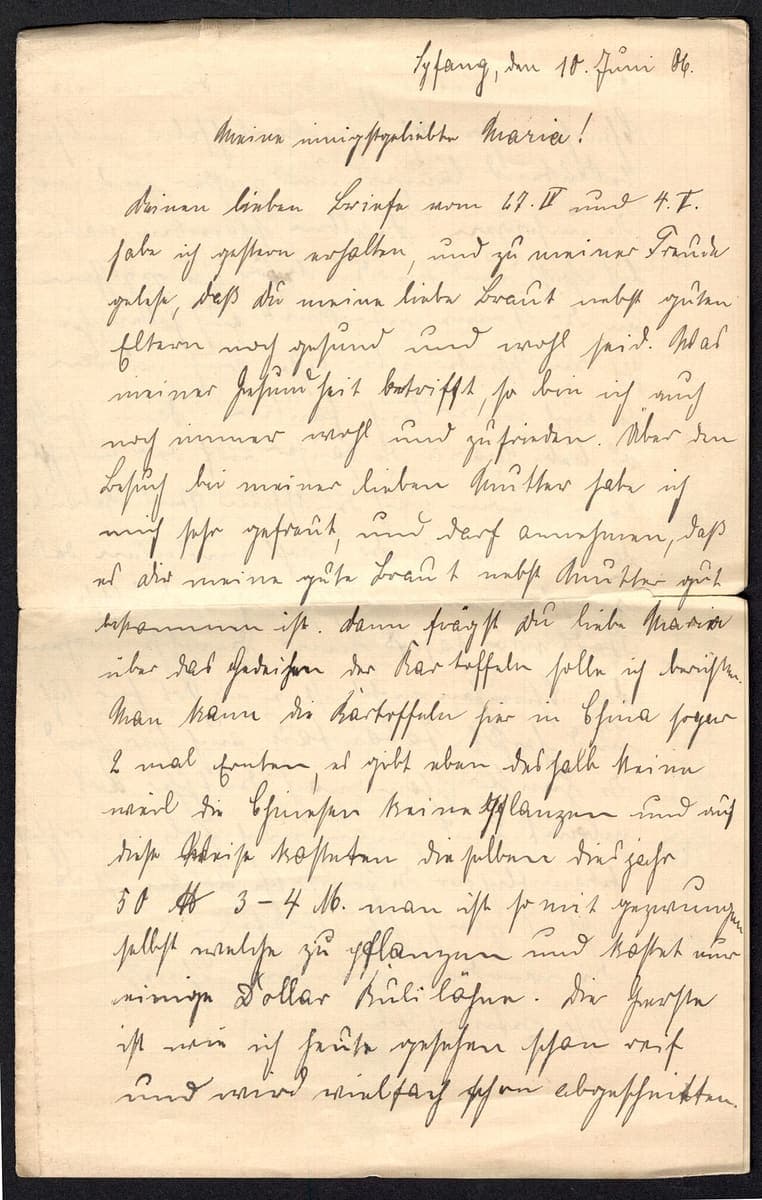 Syfang, den 10. Juni 06.
Meine innigstgeliebte Maria!
Deinen lieben Briefe vom 17. IV und 4. V.
habe ich gestern erhalten, und zu meiner Freude
gelese, daß Du meine liebe Braut nebst guten
Eltern noch gesund und wohl seid. Was
meiner Gesundheit betrifft, so bin ich auch
noch immer wohl und zufrieden. Über den
Besuch bei meiner lieben Mutter habe ich
mich sehr gefreut, und darf annehmen, daß
es Dir meine gute Braut nebst Mutter gut
bekommen ist. Dann frägst Du liebe Maria
über das Gedeihen der Kartoffeln solle ich berichten.
Man kann die Kartoffeln hier in China sogar
2 mal Ernten, es gibt eben deshalb keine
weil die Chinesen keine Pflanzen und auf
diese Weise kosteten dieselben diesjahr
50 ℔ 3–4 M. man ist somit gezwungen
selbst welche zu pflanzen und kostet nur
einige Dollar Kulilöhne. Die Gerste
ist wie ich heute gesehen schon reif
und wird vielfach schon abgeschnitten.